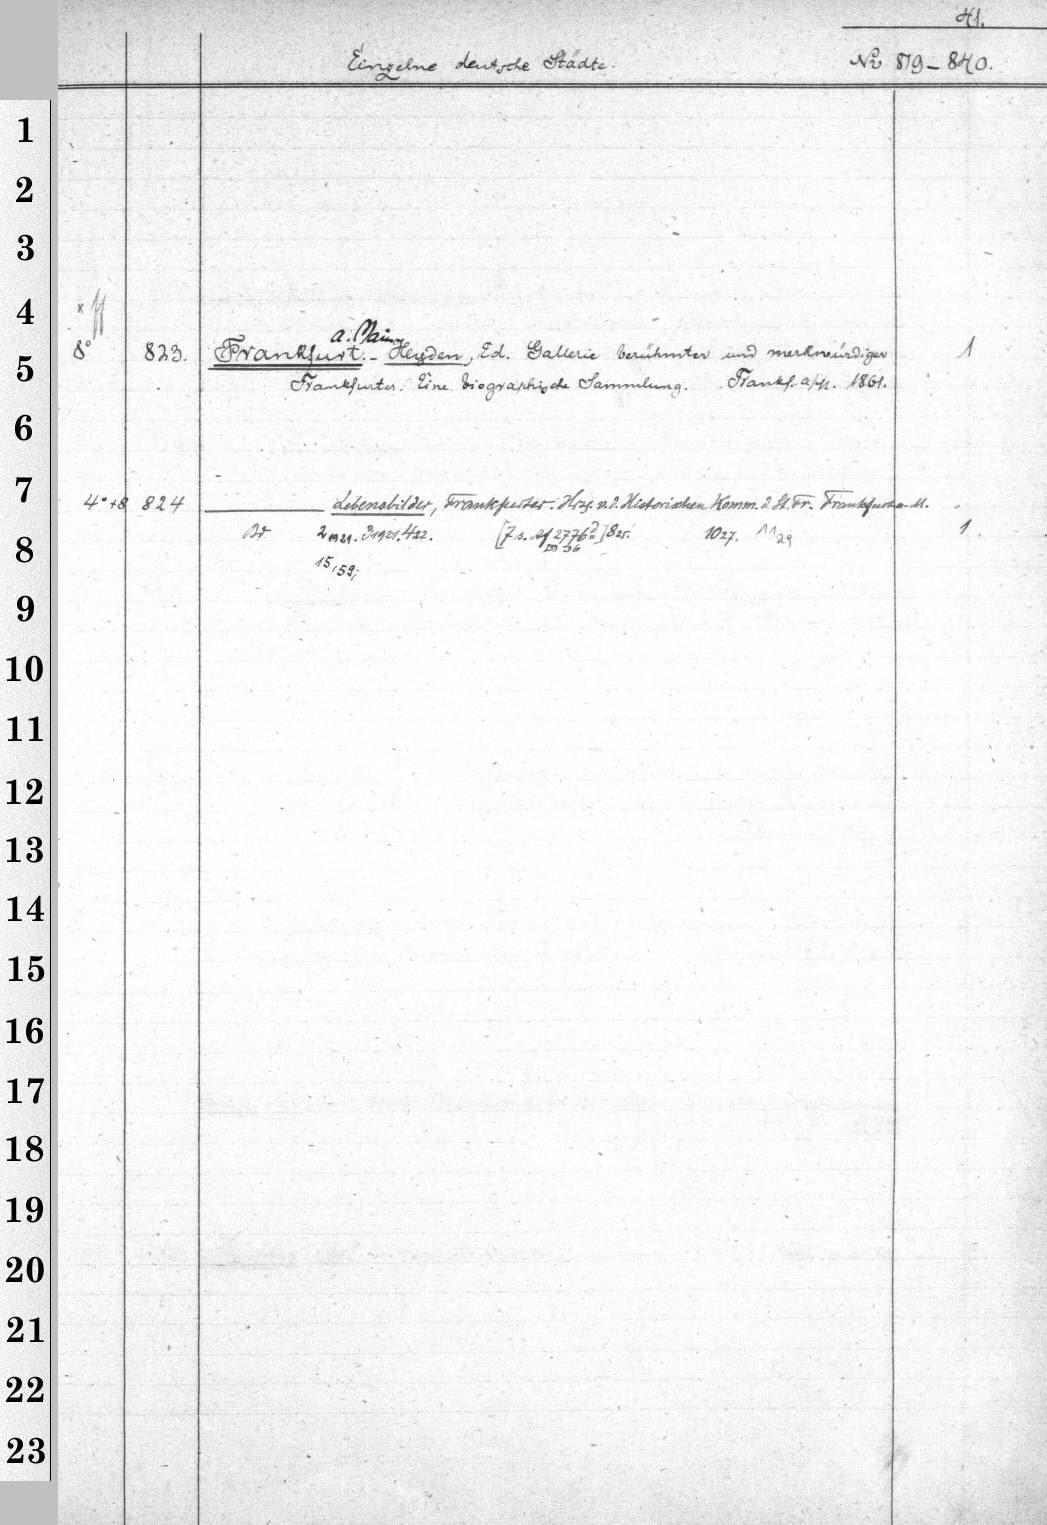 41.
Einzelne deutsche Städte.
No 819-840.
1
2
3
4
a. Main
8° 823. Frankfurt. - Heyden, Ed. Gallerie berühmter und merkwürdiger 1
5
Frankfurter. Eine biographische Sammlung. Frankf. a/M. 1861.
6
7
4°+8 824 Lebensbilder, Frankfurter. Hrsg. v. d. Historischen Komm. d. St. Fr. Frankfurt a. M.
2 1921. 3 1921. 4 22. 8 25. 10 27. 11 29 1
8
15, 59;
9
10
11
12
13
14
15
16
17
18
19
20
21
22
23